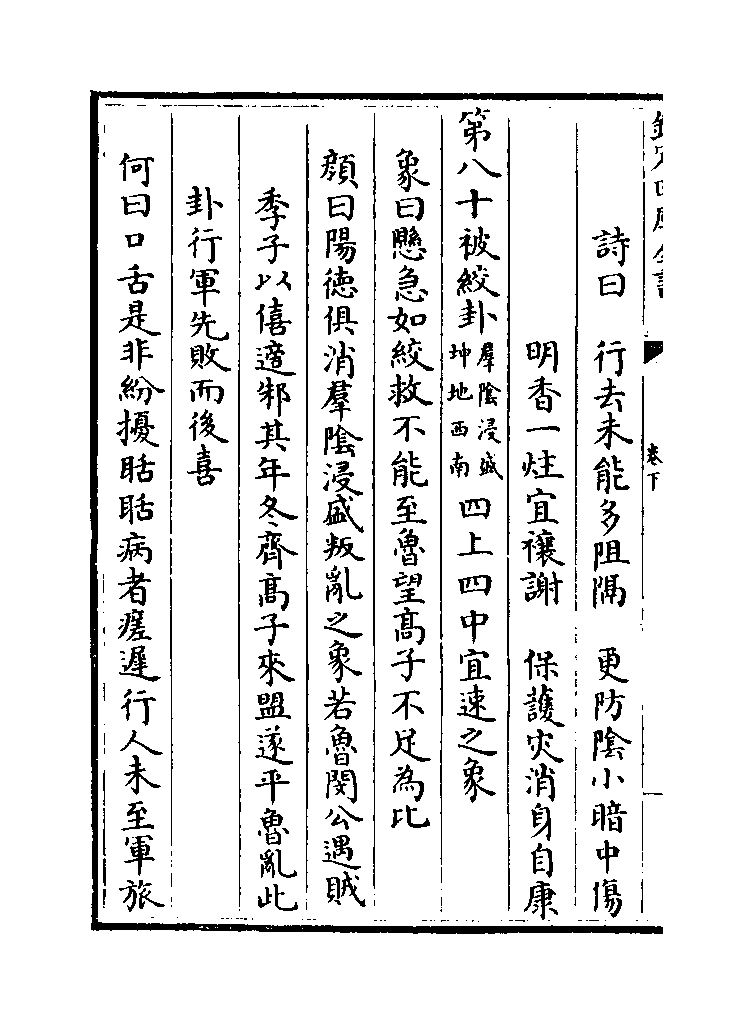 欽定四庫全書
卷下
詩曰　行去未能多阻隔　更防陰小暗中傷
明香一炷宜禳謝　保護灾消身自康
第八十被絞卦羣陰浸盛坤地西南四上四中宜速之象
象曰懸急如絞救不能至魯望高子不足為比
顔曰陽徳俱消羣陰浸盛叛亂之象若魯閔公遇賊
季子以僖適邾其年冬齊髙子來盟遂平魯亂此
卦行軍先敗而後喜
何曰口舌是非紛擾聒聒病者瘥遲行人未至軍旅